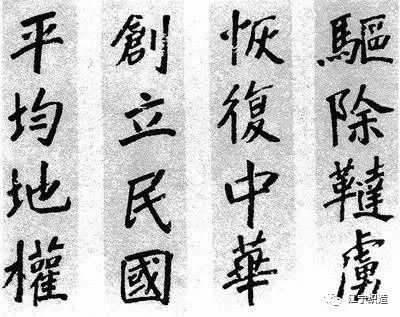 驅除韃虜
恢復中華
創立民國
平均地權
江宁织造